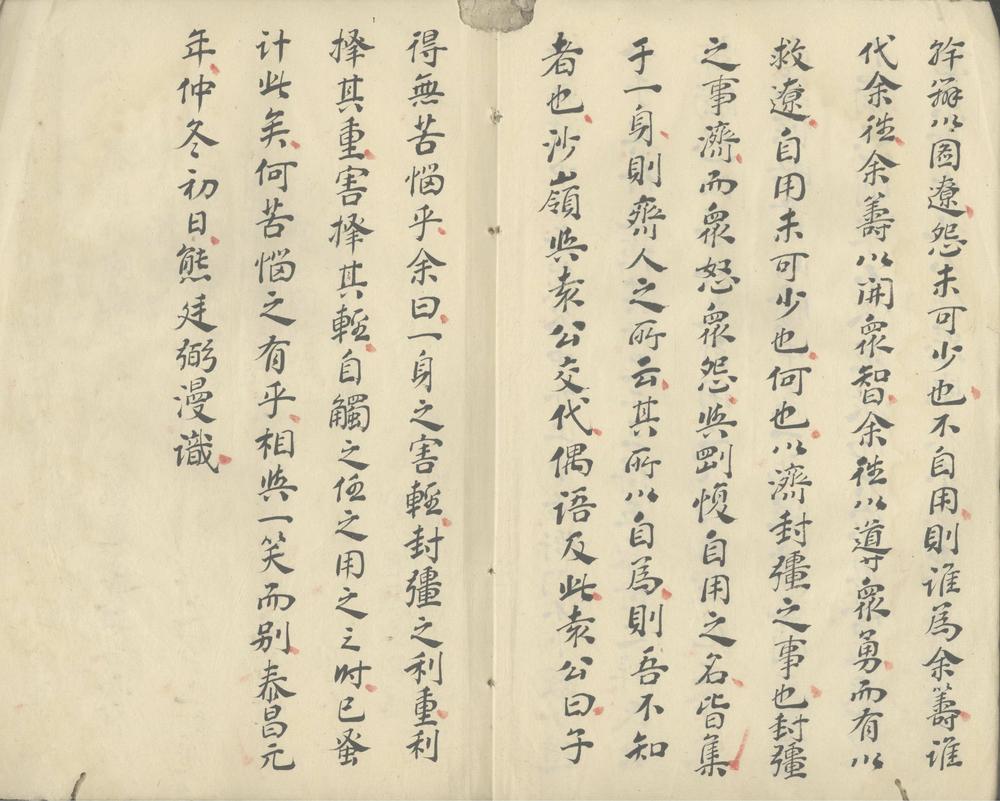 幹辦以圖遼怨未可少也不自用則誰為余籌誰
代余往余籌以開衆智余往以導衆勇而有以
救遼自用未可少也何也以濟封疆之事也封疆
之事濟而衆怒衆怨與剛愎自用之名皆集
于一身則齊人之所云其所以自為則吾不知
者也沙嶺與袁公交代偶語及此袁公曰子
得無苦惱乎余曰一身之害輕封疆之利重利
擇其重害擇其輕自觸之任之用之之時已蚤
計此矣何苦惱之有乎相與一笑而别泰昌元
年仲冬初日熊廷弼漫識